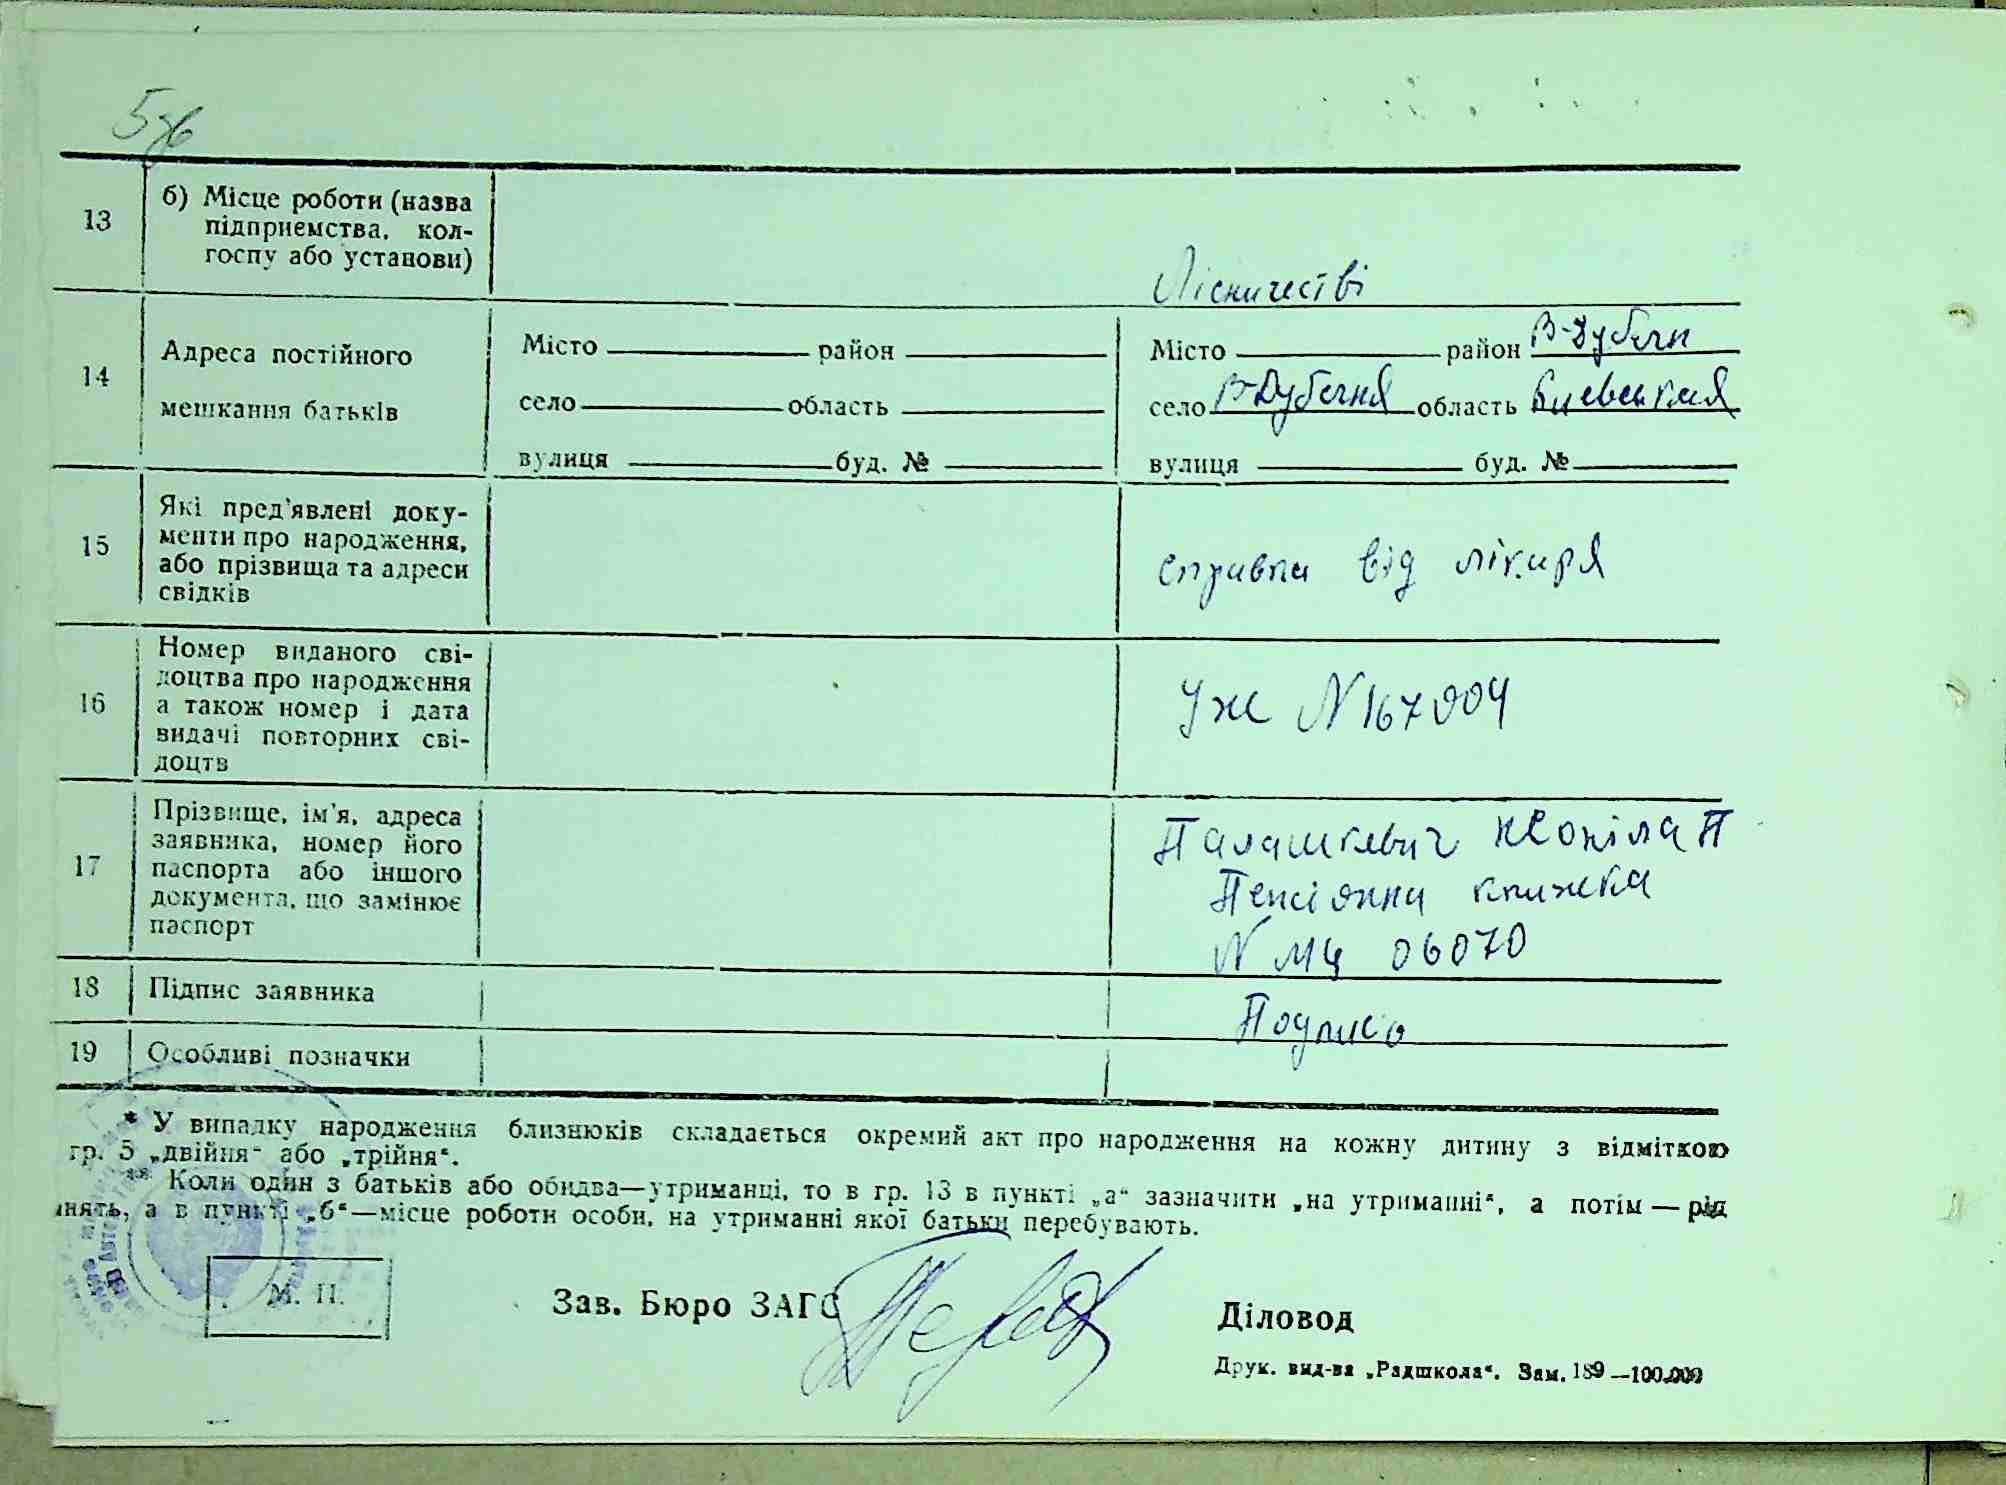 5зв
13 б) Місце роботи (назва
підприємства, кол-
госпу або установи)
Лісничестві
14 Адреса постійного
мешкання батьків
Місто район Місто район В-Дубечн
село область село В-Дубечня область Киевская
вулиця буд. № вулиця буд. №
15 Які пред'явлені доку-
менти про народження,
або прізвища та адреси
свідків
справка від лікаря
16 Номер виданого сві-
доцтва про народження
а також номер і дата
видачі повторних сві-
доцтв
УЖ N 167004
17 Прізвище, ім'я, адреса
заявника, номер його
паспорта або іншого
документа, що замінює
паспорт
Палашкевич П
Пенсіонна книжка
N МЦ 06070
18 Підпис заявника
Подпись
19 Особливі позначки
* У випадку народження близнюків складається окремий акт про народження на кожну дитину з відміткою
гр. 5 „двійня“ або „трійня“.
** Коли один з батьків або обидва—утриманці, то в гр. 13 в пункті „а“ зазначити „на утриманні“, а потім — рід
нять, а в пункті „б“—місце роботи особи, на утриманні якої батьки перебувають.
М. П.
Зав. Бюро ЗАГС
Діловод
Друк. вид-ва „Радшкола“. Зам. 189 —100.000